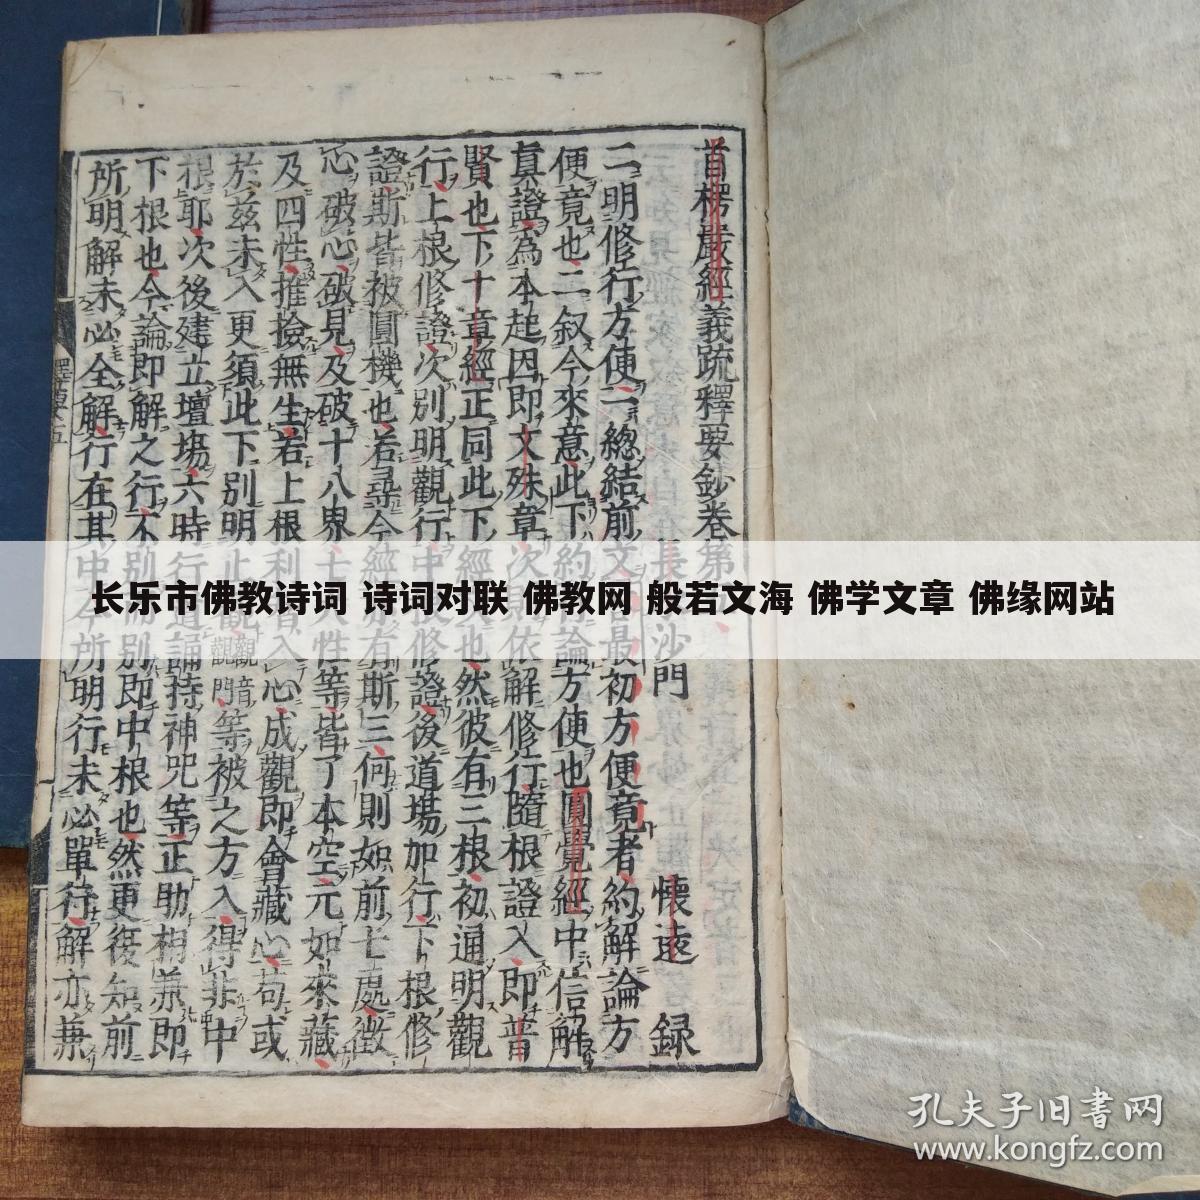 首楞嚴經義疏釋要鈔卷第
長 沙門 懷遠 録
二明修行方便二總結前文 最初方便竟者約解論方
便竟也二叙今來意此下約行論方便也圓覺經中信解
真證為本起因即文殊章次 依解修行隨根證入即普
賢也下十章經正同此下經 也然彼有三根初通明觀
行上根修證次別明觀行中根修證後道場加行下根修
證斯皆被圓機也若尋今經 有斯三何則如前七處徵
心破心破見及破十八界七大性等皆了本空元如來藏
及四性推撿無生若上根利 入心成觀即會藏心苟或
於茲未入更須此下別明止觀觀音觀門等被之方入得非中
根耶次後建立壇場六時行道誦持神咒等正助相兼即
下根也今論即解之行不別而別即中根也然更復知前
所明解未必全解行在其中今所明行未必單行解亦兼
釋要 五
长乐市佛教诗词 诗词对联 佛教网 般若文海 佛学文章 佛缘网站
孔夫子旧书网
www.kongfz.com